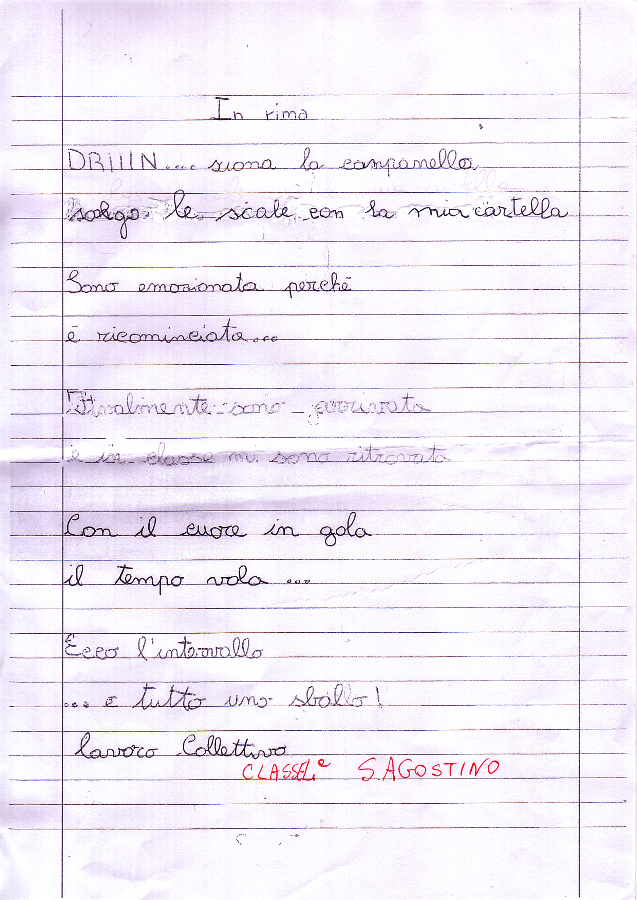 In rima
DRIIIN.... suona la campanella
salgo le scale con la mia cartella
Sono emozionata perchè
è ricominciata...
Finalmente sono arrivata
e in classe mi sono ritrovata
Con il cuore in gola
il tempo vola ...
Ecco l'intervallo
... e tutto uno sballo!
lavoro Collettivo
S. AGOSTINO